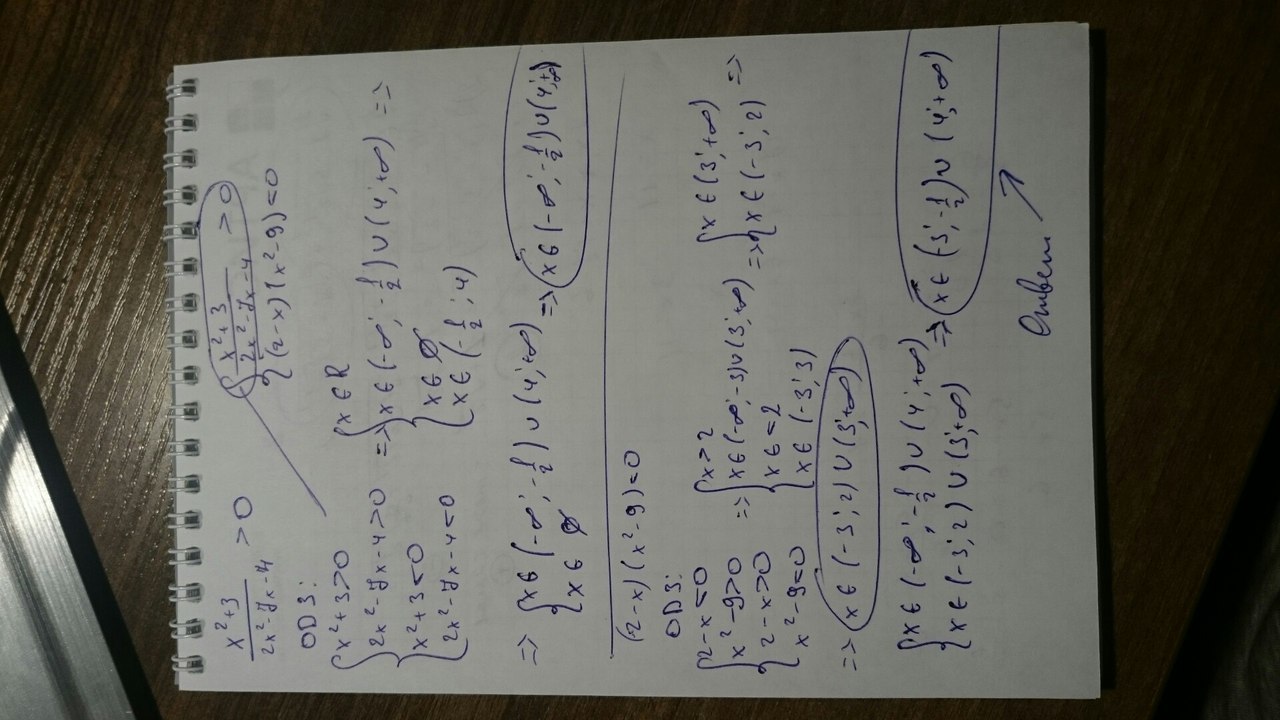 x²+3 / 2x²-7x-4 > 0
{ x²+3 / 2x²-7x-4 > 0
{ (2-x)(x²-9)<0
ОДЗ:
{ x²+3>0
{ 2x²-7x-4>0
{ x²+3<0
{ 2x²-7x-4<0
=> { x∈R
{ x∈(-∞;-1/2)∪(4;+∞) =>
{ x∈∅
{ x∈(-1/2;4)
=> { x∈(-∞;-1/2)∪(4;+∞)
{ x∈∅
=> x∈(-∞;-1/2)∪(4;+∞)
(2-x)(x²-9)<0
ОДЗ:
{ 2-x<0
{ x²-9>0
{ 2-x>0
{ x²-9<0
=> { x>2
{ x∈(-∞;-3)∪(3;+∞)
{ x∈<2
{ x∈(-3;3)
=> { x∈(3;+∞)
{ x∈(-3;2) =>
=> x∈(-3;2)∪(3;+∞)
{ x∈(-∞;-1/2)∪(4;+∞)
{ x∈(-3;2)∪(3;+∞)
=> x∈(-3;-1/2)∪(4;+∞)
Ответ